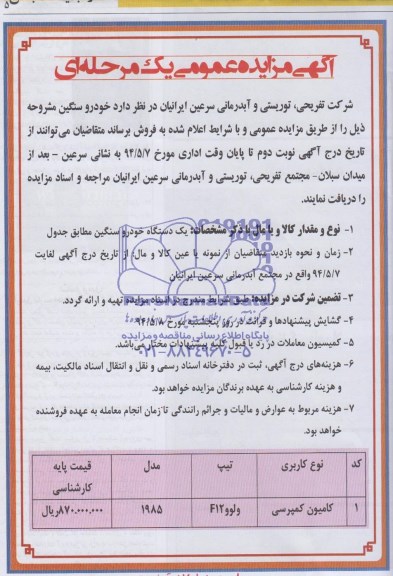 آگهی مزایده عمومی یک مرحله‌ای
شرکت تفریحی، توریستی و آبدرمانی سرعین ایرانیان در نظر دارد خودرو سنگین مشروحه
ذیل را از طریق مزایده عمومی و با شرایط اعلام شده به فروش برساند متقاضیان می‌توانند از
تاریخ درج آگهی نوبت دوم تا پایان وقت اداری مورخ ۹۴/۵/۷ به نشانی سرعین - بعد از
میدان سبلان- مجتمع تفریحی، توریستی و آبدرمانی سرعین ایرانیان مراجعه و اسناد مزایده
را دریافت نمایند.
۱- نوع و مقدار کالا و یا مال با ذکر مشخصات: یک دستگاه خودرو سنگین مطابق جدول
۲- زمان و نحوه بازدید متقاضیان از نمونه یا عین کالا و مال: از تاریخ درج آگهی لغایت
۹۴/۵/۷ واقع در مجتمع آبدرمانی سرعین ایرانیان
۳- تضمین شرکت در مزایده: طبق شرایط مندرج در اسناد مزایده تهیه و ارائه گردد.
۴- گشایش پیشنهادها و قرائت در روز پنجشنبه مورخ ۹۴/۵/۸
۵- کمیسیون معاملات در رد یا قبول کلیه پیشنهادات مختار می‌باشد.
پایگاه اطلاع رسانی مناقصه و مزایده
۰۲۱-۸۸۳۴۹۶۷۰-۵
۶- هزینه‌های درج آگهی، ثبت در دفترخانه اسناد رسمی و نقل و انتقال اسناد مالکیت، بیمه
و هزینه کارشناسی به عهده برندگان مزایده خواهد بود.
۷- هزینه مربوط به عوارض و مالیات و جرائم رانندگی تا زمان انجام معامله به عهده فروشنده
خواهد بود.
کد نوع کاربری تیپ مدل قیمت پایه
کارشناسی
۱ کامیون کمپرسی ولوو F۱۲ ۱۹۸۵ ۸۷۰.۰۰۰.۰۰۰ریال